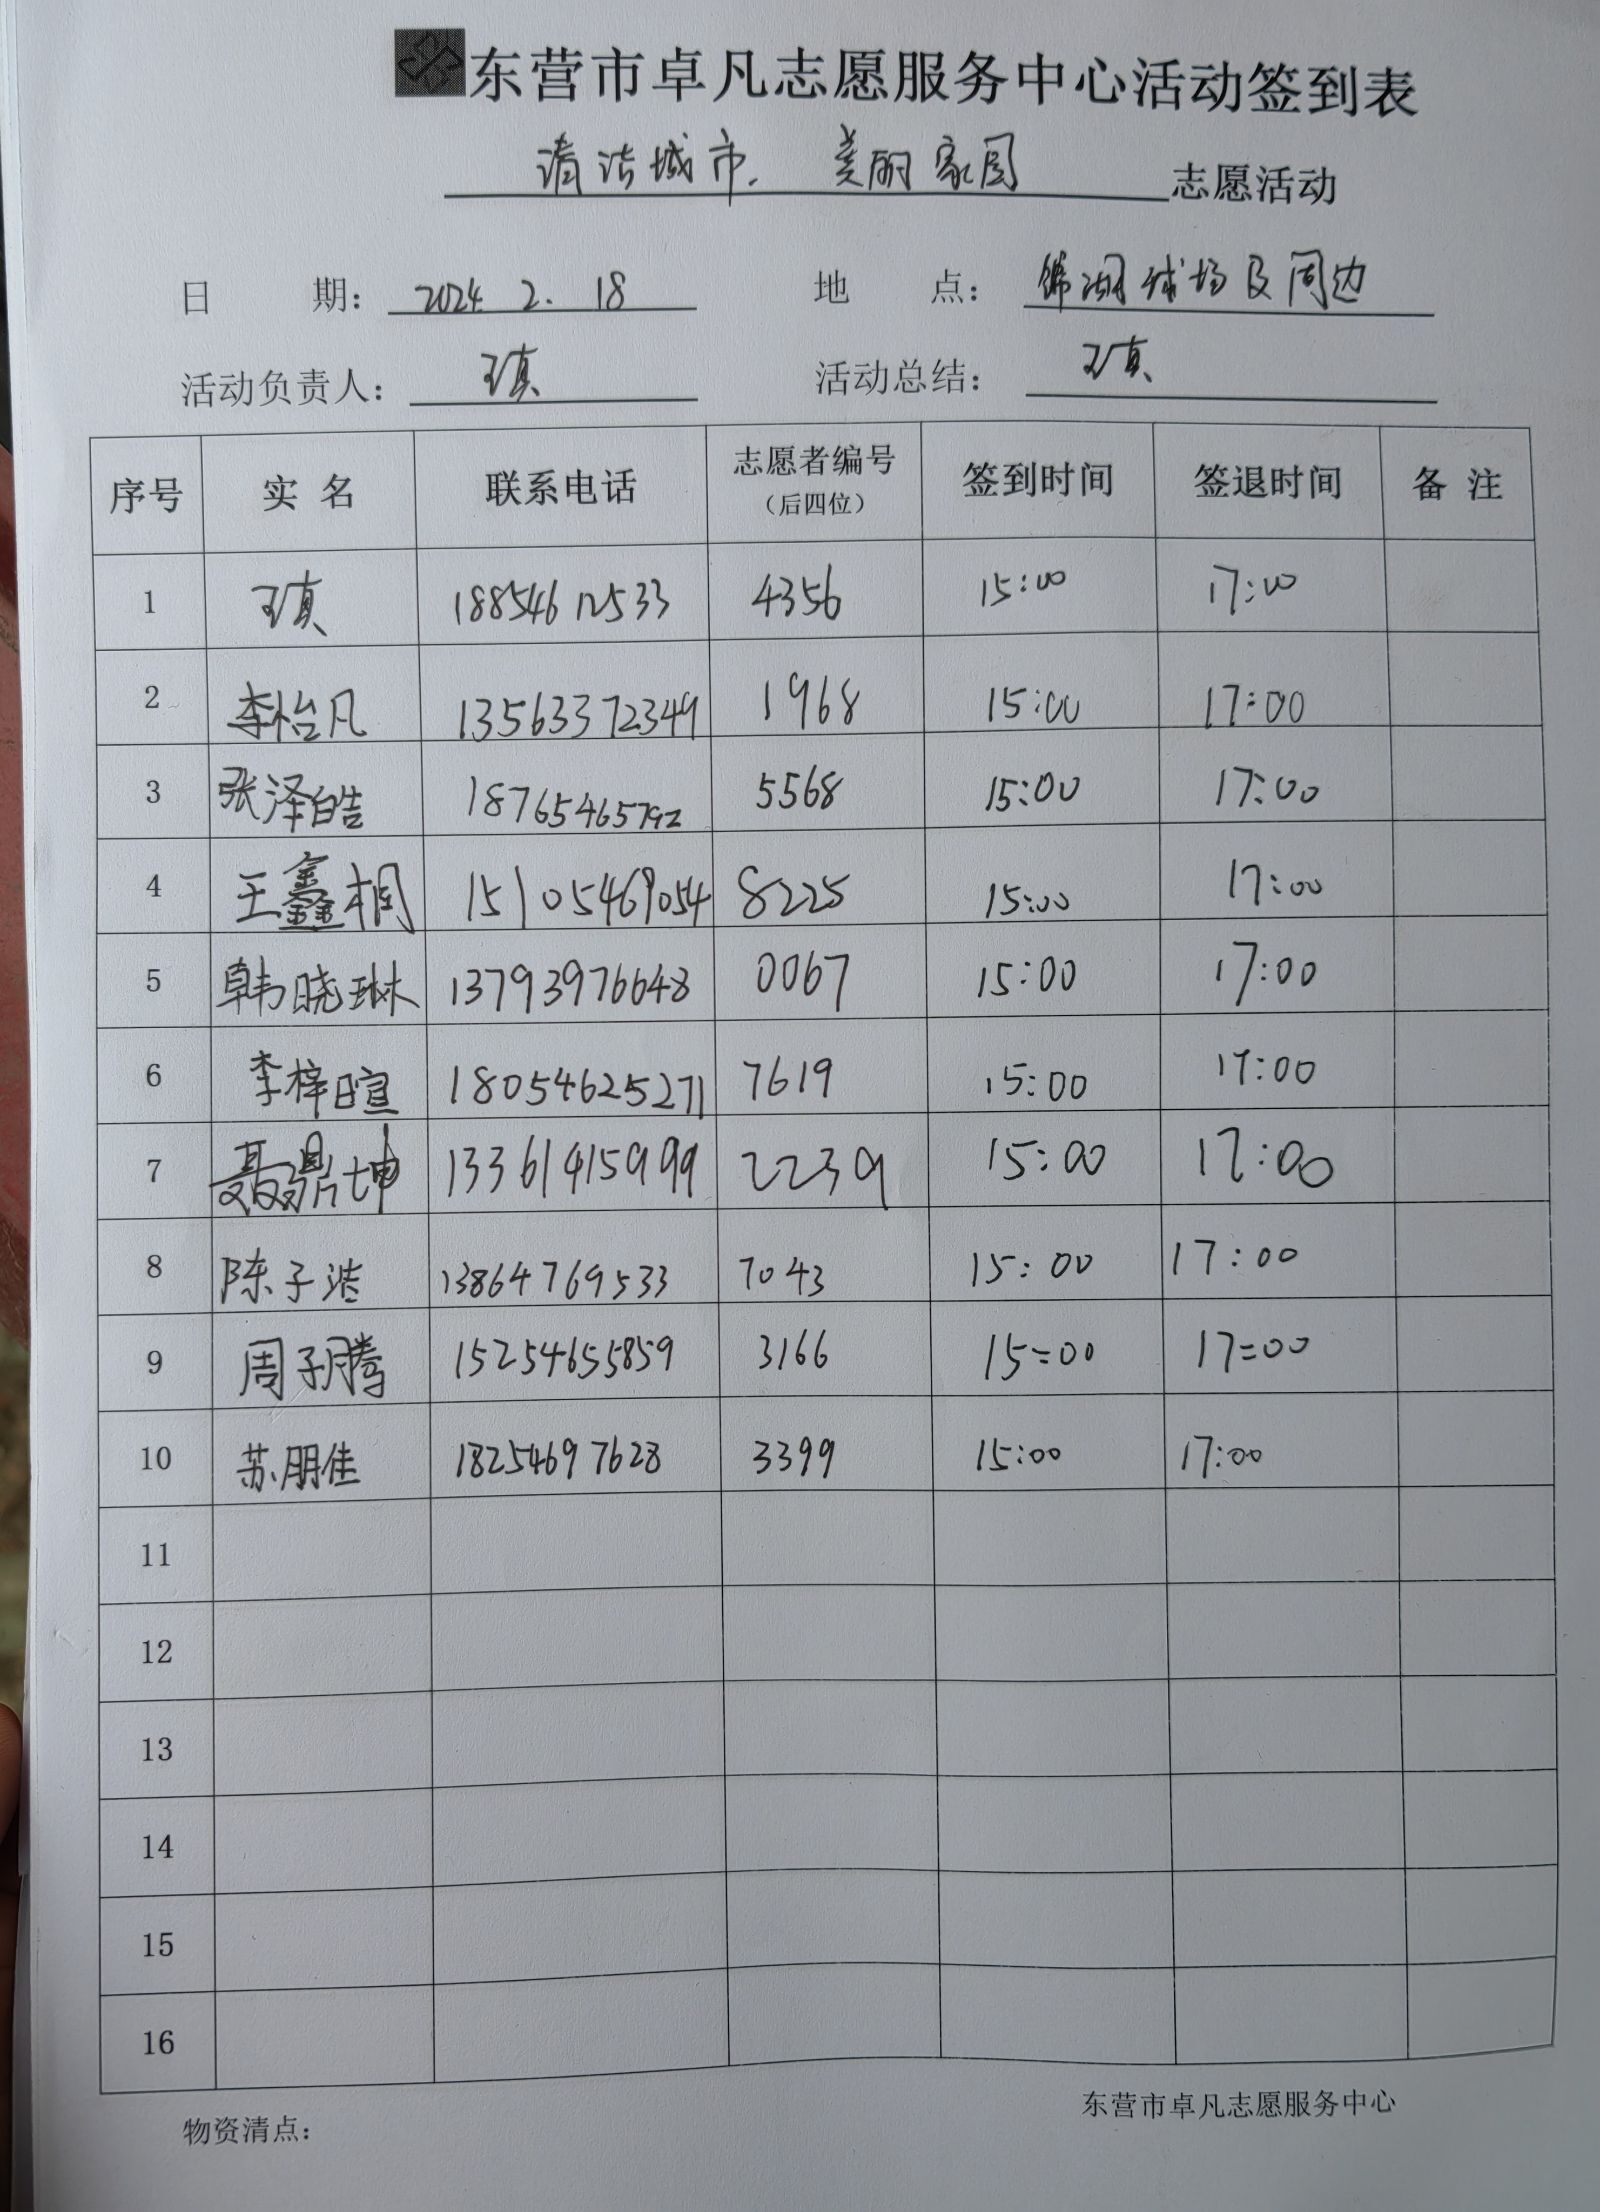 东营市卓凡志愿服务中心活动签到表
清洁城市. 美丽家园 志愿活动
日 期: 2024. 2. 18 地 点: 锦湖球场及周边
活动负责人: 王真 活动总结: 王真
序号 实 名 联系电话 志愿者编号（后四位） 签到时间 签退时间 备 注
1 王真 18854612533 4356 15:00 17:00
2 李怡凡 13563372349 1968 15:00 17:00
3 张泽皓 18765465792 5568 15:00 17:00
4 王鑫桐 15105469054 8225 15:00 17:00
5 韩晓琳 13793976648 0067 15:00 17:00
6 李梓暄 18054625271 7619 15:00 17:00
7 聂鼎坤 13361415999 2239 15:00 17:00
8 陈子浩 13864769533 7043 15:00 17:00
9 周子腾 15254655859 3166 15=00 17=00
10 苏朋佳 18254697628 3399 15:00 17:00
11
12
13
14
15
16
物资清点: 东营市卓凡志愿服务中心